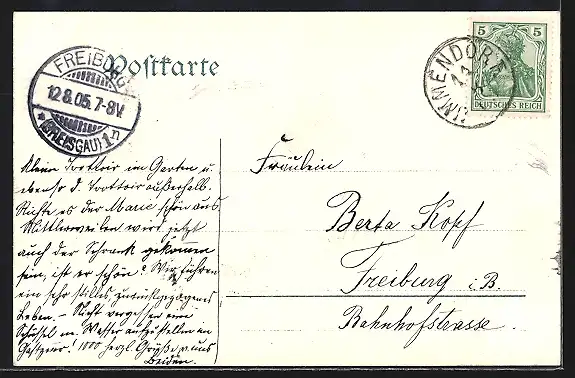 Postkarte
FREIBURG
12.8.05.7-8V.
* (BREISGAU) 1n
IMMENDORF
5 5
DEUTSCHES REICH
kleine Trottoir im Garten u.
ebenso d. Trottoir außerhalb.
Richte es der Marie schön aus.
Mittlerweilen wird jetzt
auch der Schrank gekommen
sein, ist er schön? Wir führen
ein sehr stilles, zurückgezogenes
Leben. – Nicht vergessen eine
Schüssel m. Wasser aufzustellen im
1000 herzl. Grüße v. uns
Beiden.
Fräulein
Berta Kopf
Freiburg i. B.
Bahnhofstrasse.